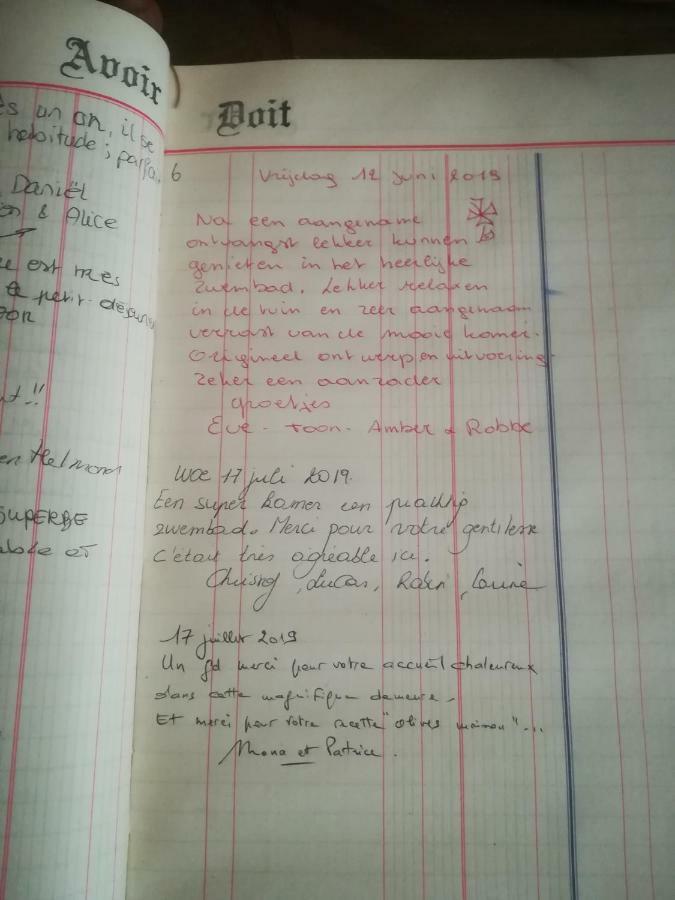 Avoir
ès un an, il se
habitude ; parfa.
Daniël
& Alice
est très
petit-déjeuner
!!
en Helmond
SUPERBE
Doit
6
Vrijdag 12 juni 2019
Na een aangename
ontvangst lekker kunnen
genieten in het heerlijke
zwembad. Lekker relaxen
in de tuin en zeer aangenaam
verrast van de mooie kamer.
Origineel ontwerp en uitvoering
zeker een aanrader
Groetjes
Eve - Toon - Amber & Robbe
Woe 17 juli 2019.
Een super kamer een prachtig
zwembad. Merci pour votre gentillesse
c'était très agréable ici.
Lucas, Robin, Laurine
17 juillet 2019
Un gd merci pour votre accueil chaleureux
dans cette magnifique demeure.
Et merci pour votre recette "olives maison"...
Mona et Patrice.